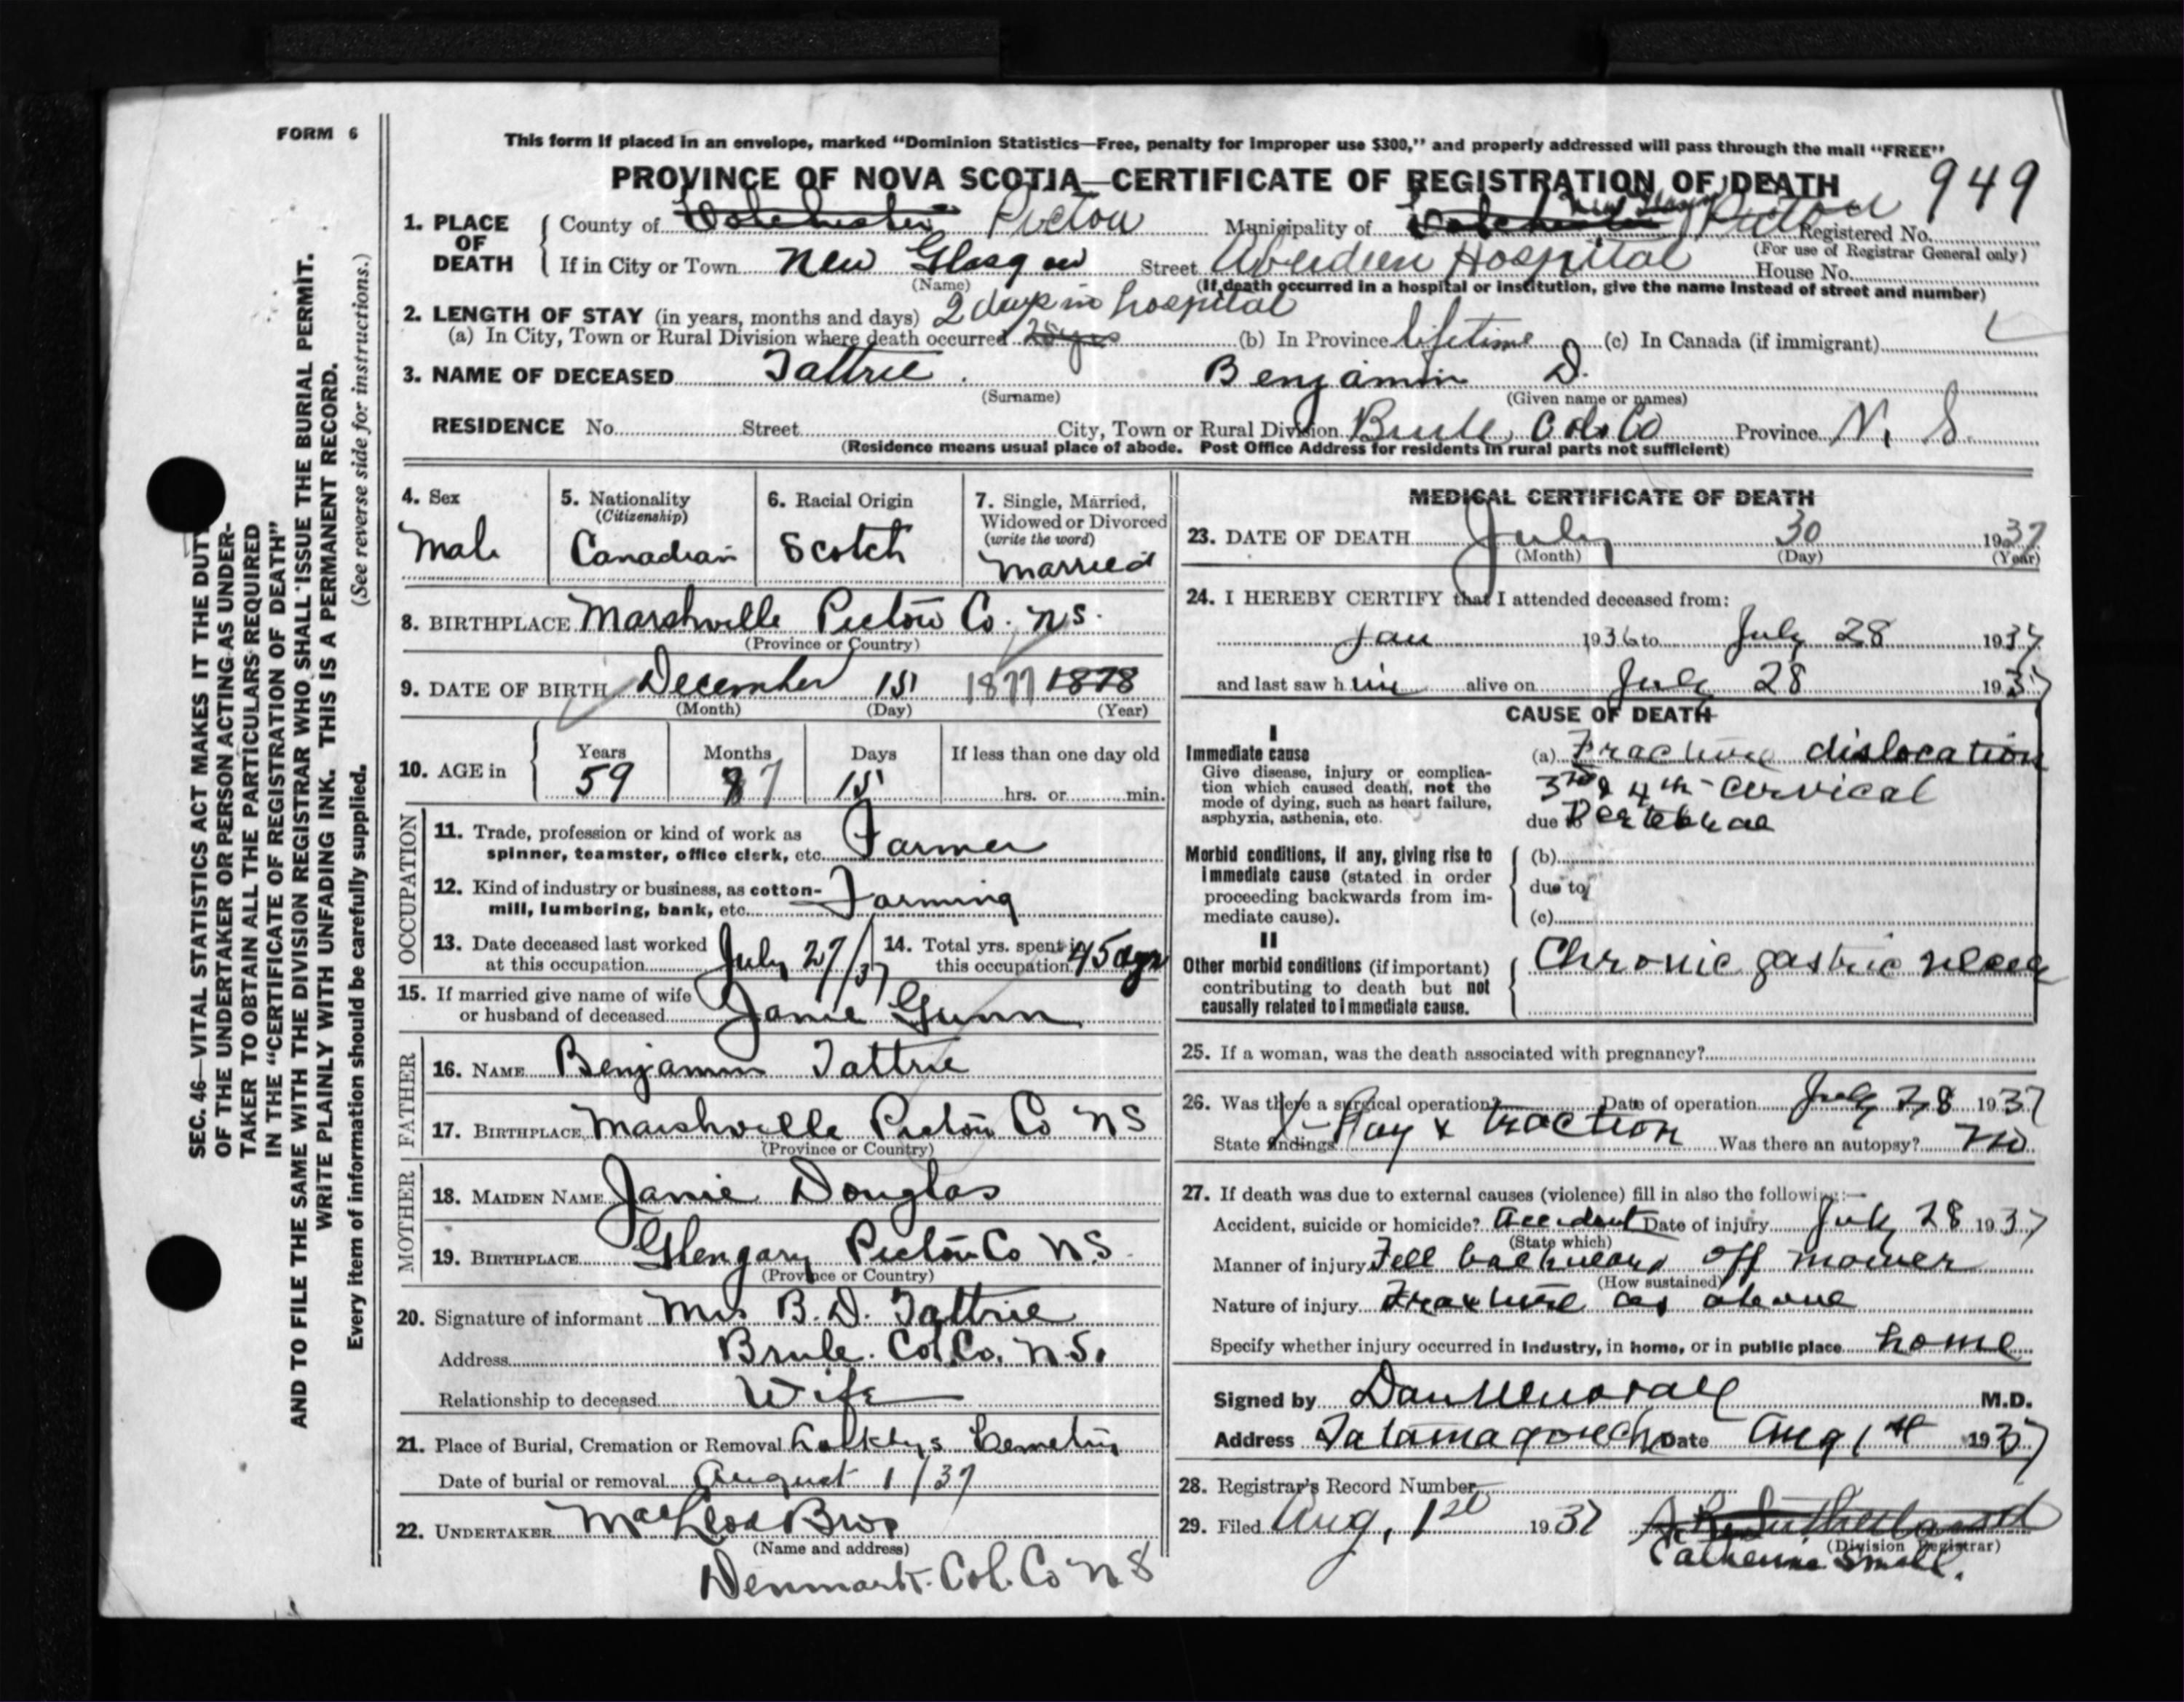 FORM 6
This form if placed in an envelope, marked “Dominion Statistics—Free, penalty for improper use $300,” and properly addressed will pass through the mail “FREE”
PROVINCE OF NOVA SCOTIA—CERTIFICATE OF REGISTRATION OF DEATH 949
1. PLACE OF DEATH
County of Colchester Pictou Municipality of Colchester Pictou Registered No.
(For use of Registrar General only)
If in City or Town New Glasgow Street Aberdeen Hospital House No.
(Name) (If death occurred in a hospital or institution, give the name instead of street and number)
2. LENGTH OF STAY (in years, months and days) 2 days in hospital
(a) In City, Town or Rural Division where death occurred (b) In Province lifetime (c) In Canada (if immigrant)
3. NAME OF DECEASED Tattrie Benjamin D.
(Surname) (Given name or names)
RESIDENCE No. Street City, Town or Rural Division Brule Col. Co Province N. S.
(Residence means usual place of abode. Post Office Address for residents in rural parts not sufficient)
4. Sex
Male
5. Nationality
(Citizenship)
Canadian
6. Racial Origin
Scotch
7. Single, Married,
Widowed or Divorced
(write the word)
Married
8. BIRTHPLACE Marshville Pictou Co. N.S.
(Province or Country)
9. DATE OF BIRTH December 15 1877 1878
(Month) (Day) (Year)
10. AGE in
Years Months Days If less than one day old
59 7 15 hrs. or min.
OCCUPATION
11. Trade, profession or kind of work as
spinner, teamster, office clerk, etc. Farmer
12. Kind of industry or business, as cotton-
mill, lumbering, bank, etc. Farming
13. Date deceased last worked
at this occupation July 27/37
14. Total yrs. spent in
this occupation 45
15. If married give name of wife
or husband of deceased Janie Gunn
FATHER
16. NAME Benjamin Tattrie
17. BIRTHPLACE Marshville Pictou Co NS
(Province or Country)
MOTHER
18. MAIDEN NAME Janie Douglas
19. BIRTHPLACE Glengary Pictou Co N.S.
(Province or Country)
20. Signature of informant Mrs B. D. Tattrie
Address Brule. Col. Co. N.S.
Relationship to deceased Wife
21. Place of Burial, Cremation or Removal
Date of burial or removal August 1/37
22. UNDERTAKER MacLeod Bros
(Name and address)
Denmark. Col. Co NS
MEDICAL CERTIFICATE OF DEATH
23. DATE OF DEATH July 30 1937
(Month) (Day) (Year)
24. I HEREBY CERTIFY that I attended deceased from:
Jan 1936 to July 28 1937
and last saw him alive on July 28 1937
CAUSE OF DEATH
I
Immediate cause
Give disease, injury or complica-
tion which caused death, not the
mode of dying, such as heart failure,
asphyxia, asthenia, etc.
(a) Fracture dislocation
3rd & 4th cervical
due to Vertebrae
Morbid conditions, if any, giving rise to
immediate cause (stated in order
proceeding backwards from im-
mediate cause).
(b)
due to
(c)
II
Other morbid conditions (if important)
contributing to death but not
causally related to immediate cause.
Chronic gastric ulcer
25. If a woman, was the death associated with pregnancy?
26. Was there a surgical operation? Date of operation July 28 1937
State findings X-Ray & traction Was there an autopsy? No
27. If death was due to external causes (violence) fill in also the following:—
Accident, suicide or homicide? Accident Date of injury July 28 1937
(State which)
Manner of injury Fell backward off mower
(How sustained)
Nature of injury Fracture as above
Specify whether injury occurred in industry, in home, or in public place home
Signed by M.D.
Address Tatamagouche Date Aug 1st 1937
28. Registrar's Record Number
29. Filed Aug. 1st 1937 A. R. Sutherland
(Division Registrar)
Catherine Small.
SEC. 46—VITAL STATISTICS ACT MAKES IT THE DUTY
OF THE UNDERTAKER OR PERSON ACTING AS UNDER-
TAKER TO OBTAIN ALL THE PARTICULARS REQUIRED
IN THE “CERTIFICATE OF REGISTRATION OF DEATH”
AND TO FILE THE SAME WITH THE DIVISION REGISTRAR WHO SHALL ISSUE THE BURIAL PERMIT.
WRITE PLAINLY WITH UNFADING INK. THIS IS A PERMANENT RECORD.
Every item of information should be carefully supplied. (See reverse side for instructions.)